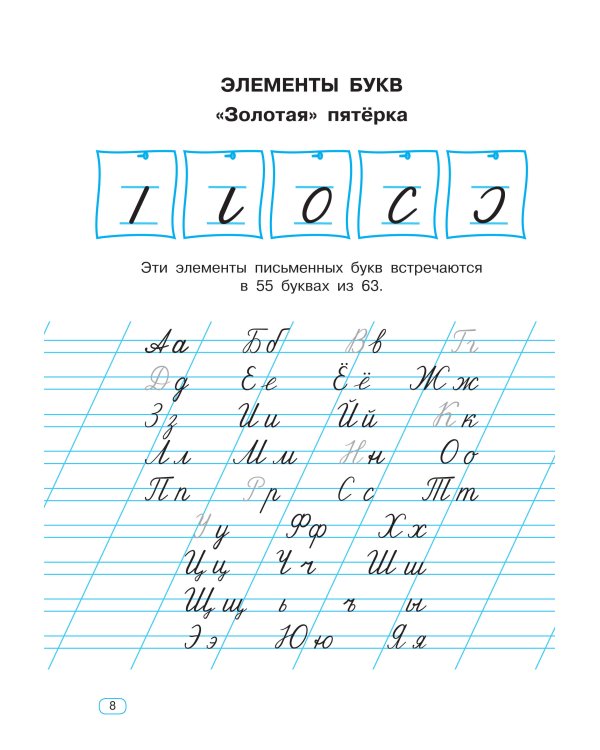 ЭЛЕМЕНТЫ БУКВ
«Золотая» пятёрка
Эти элементы письменных букв встречаются
в 55 буквах из 63.
Аа Бб Вв Гг
Дд Ее Ёё Жж
Зз Ии Йй Кк
Лл Мм Нн Оо
Пп Рр Сс Тт
Уу Фф Хх
Цц Чч Шш
Щщ ь ъ ы
Ээ Юю Яя
8